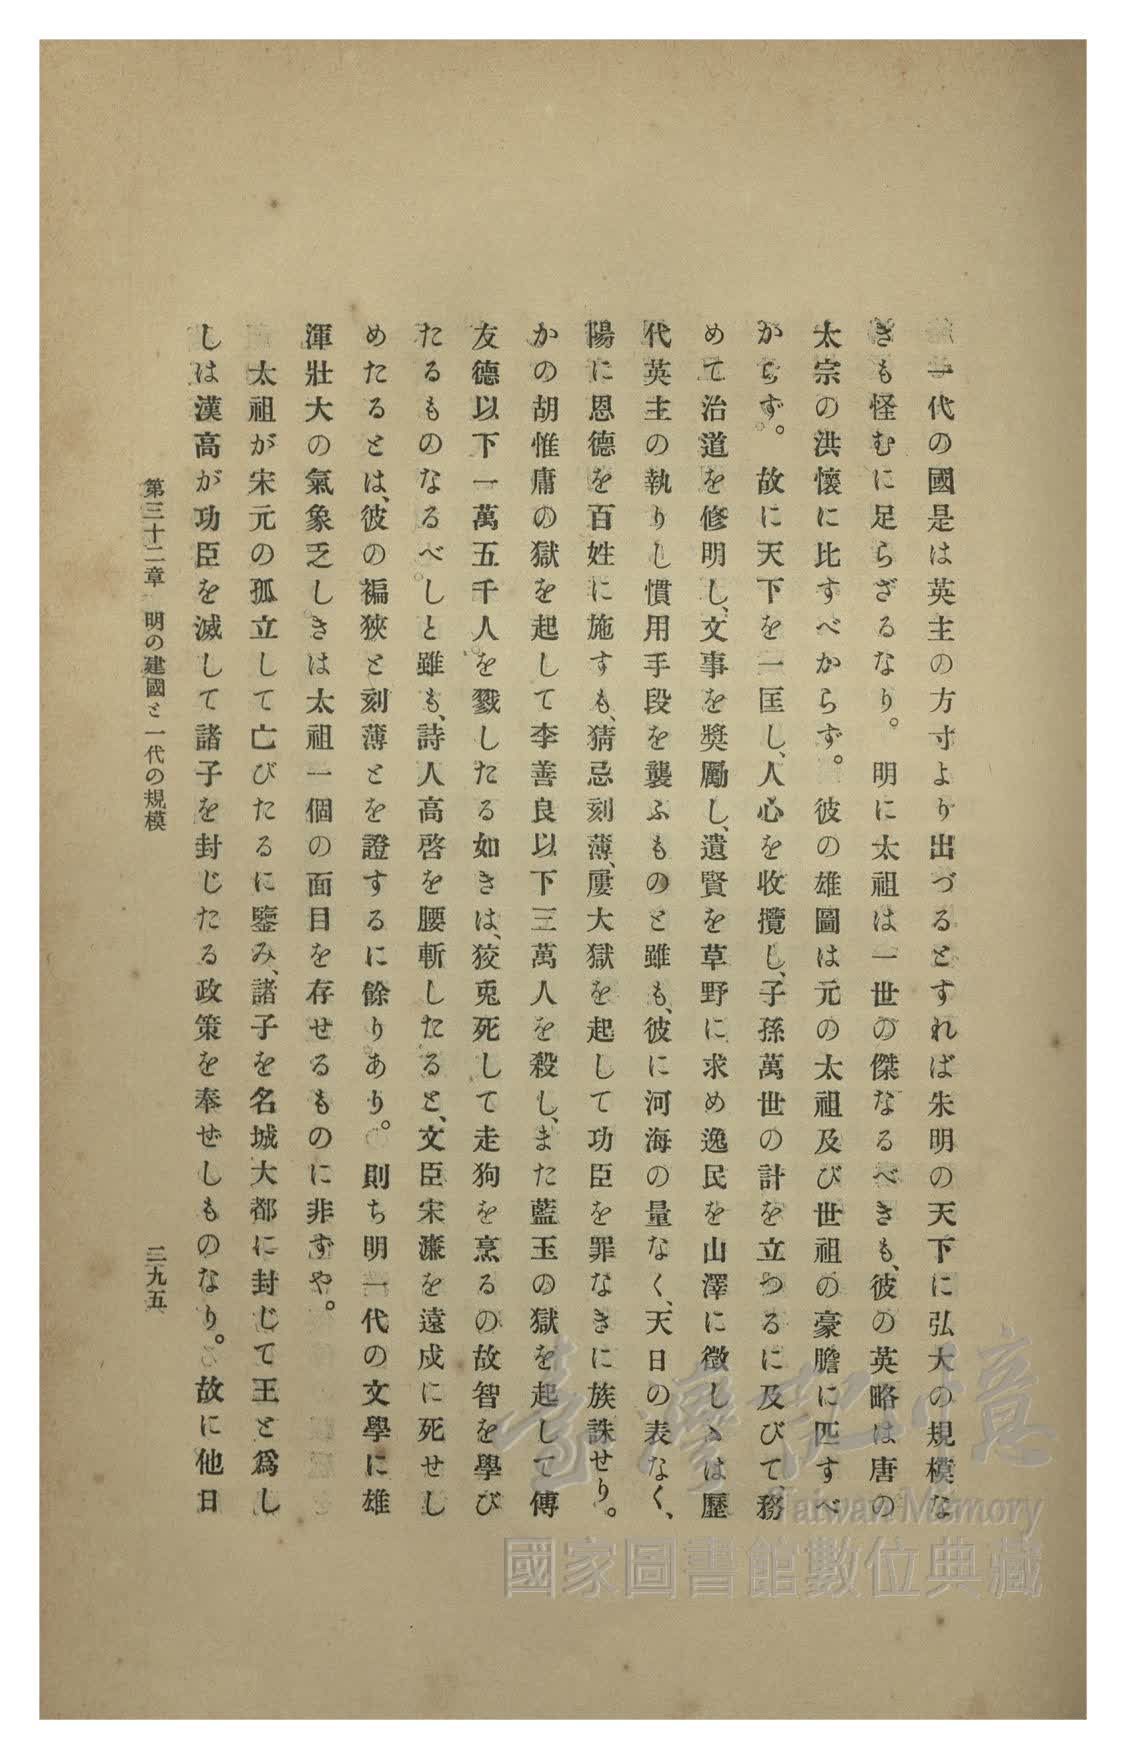 一代の國是は英主の方寸より出づるとすれば朱明の天下に弘大の規模な
きも怪むに足らざるなり。明に太祖は一世の傑なるべきも、彼の英略は唐の
太宗の洪懷に比すべからず。彼の雄圖は元の太祖及び世祖の豪膽に匹すべ
からず。故に天下を一匡し、人心を收攬し、子孫萬世の計を立つるに及びて務
めて治道を修明し、文事を奬勵し、遺賢を草野に求め逸民を山澤に徵しゝは歷
代英主の執りし慣用手段を襲ふものと雖も、彼に河海の量なく、天日の表なく、
陽に恩德を百姓に施すも、猜忌刻薄、屢大獄を起して功臣を罪なきに族誅せり。
かの胡惟庸の獄を起して李善良以下三萬人を殺し、また藍玉の獄を起して傅
友德以下一萬五千人を戮したる如きは、狡兎死して走狗を烹るの故智を學び
たるものなるべしと雖も、詩人高啓を腰斬したると、文臣宋濂を遠戍に死せし
めたるとは、彼の褊狹と刻薄とを證するに餘りあり。則ち明一代の文學に雄
渾壯大の氣象乏しきは太祖一個の面目を存せるものに非ずや。
太祖が宋元の孤立して亡びたるに鑒み、諸子を名城大都に封じて王と爲し
しは漢高が功臣を滅して諸子を封じたる政策を奉ぜしものなり。故に他日
第三十二章 明の建國と一代の規模
二九五
臺灣記憶
Taiwan Memory
國家圖書館數位典藏